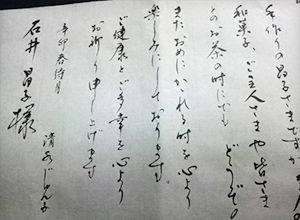 手作りの品ですが
和菓子、ご主人さまや皆さま
とのお茶の時にでも どうぞ
またおめにかかれる時を
楽しみにしております
ご健康とご多幸を心より
お祈り申し上げます
辛卯春待月
石井 昌子様